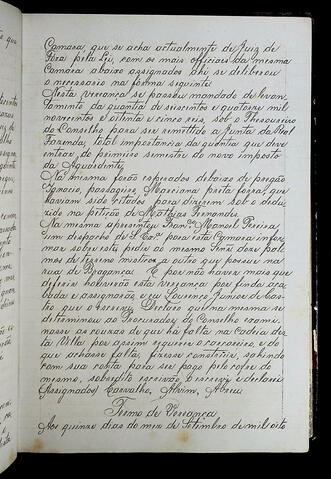 Camara, que se acha actualmente de Juiz de
Fora pela Ley, com os mais officiaes da mesma
Camara abaixo assignados ahi se deliberou
o necessario na forma seguinte
Nesta vereança se passou mandado de levan-
tamento da quantia de seiscentos e quatorze mil
novecentos e oitenta e cinco reis, sob o Thesoureiro
do Conselho para ser remittido a Junta da Real
Fazenda, total importancia da quantia que deve
entrar do primeiro semestre do novo imposto
da Aguardente.
Na mesma forão esperados debaixo de pregão
Ignacio, possageiro, Marciana preta forra, que
haviam sido citados para dizerem sob o dedu-
zido na petição de Mathias Fernandes.
Na mesma apresentou Franco. Manoel Pereira
um despacho de S. Exa. para esta Camara infor-
mar sobre este pede ao mesmo Senr. doze pal-
mos de terreno misticos a outro que possue na
rua de Bragança. E por não haver mais que
deferir houverão esta vereança por finda aca-
bada e assignarão, e eu Lourenço Junior de Cas-
tro que o escrevy. Declaro que na mesma se
determinou ao Procurador do Conselho exami-
nasse as couzas de que há falta na Cadeia des-
ta Villa por assim requerer o carcereiro, e do
que achasse falta, fizesse construir, sahindo
com sua conta para ser pago pelo cofre do
mesmo, sobredito escrivão o escrevi e declarei
(Assignados) Carvalho, Alvim, Abreu
Termo de Vereança
Aos quinze dias do mez de Setembro de mil oito